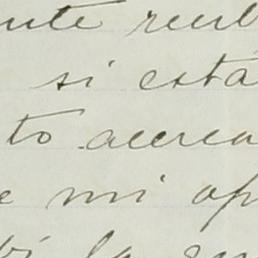 nte recib
si está
to acerca
e mi op